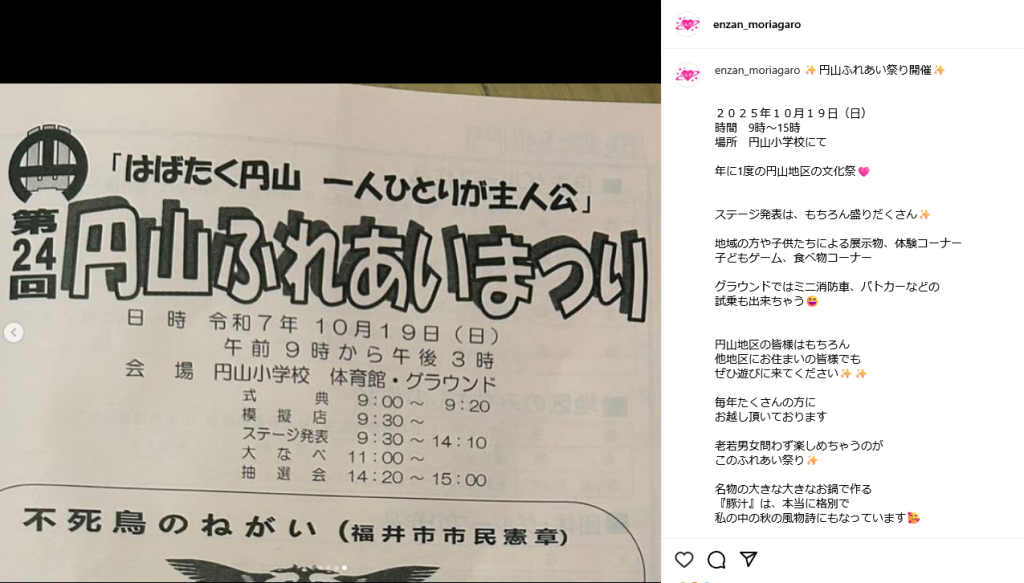 「はばたく円山 一人ひとりが主人公」
第24回
円山ふれあいまつり
日 時 令和7年 10月19日(日)
午前9時から午後3時
会 場 円山小学校 体育館・グラウンド
式 典 9:00 ~ 9:20
模 擬 店 9:30 ~
ステージ発表 9:30 ~ 14:10
大 な べ 11:00 ~
抽 選 会 14:20 ~ 15:00
不死鳥のねがい(福井市市民憲章)
enzan_moriagaro
enzan_moriagaro ✨円山ふれあい祭り開催✨
２０２５年１０月１９日（日）
時間　9時〜15時
場所　円山小学校にて
年に1度の円山地区の文化祭💓
ステージ発表は、もちろん盛りだくさん✨
地域の方や子供たちによる展示物、体験コーナー
子どもゲーム、食べ物コーナー
グラウンドではミニ消防車、パトカーなどの
試乗も出来ちゃう😆
円山地区の皆様はもちろん
他地区にお住まいの皆様でも
ぜひ遊びに来てください✨✨
毎年たくさんの方に
お越し頂いております
老若男女問わず楽しめちゃうのが
このふれあい祭り✨
名物の大きな大きなお鍋で作る
『豚汁』は、本当に格別で
私の中の秋の風物詩にもなっています🥰